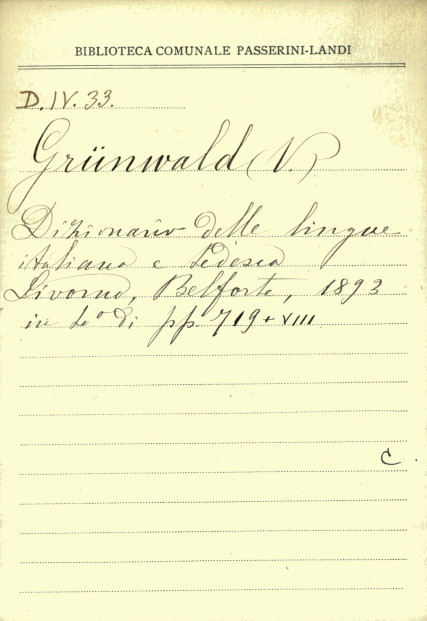 BIBLIOTECA COMUNALE PASSERINI-LANDI
D.IV.33.
Grünwald (V.)
Dizionario delle lingue
italiana e tedesca
Livorno, Belforte, 1893
in di pp. 719+XIII
C